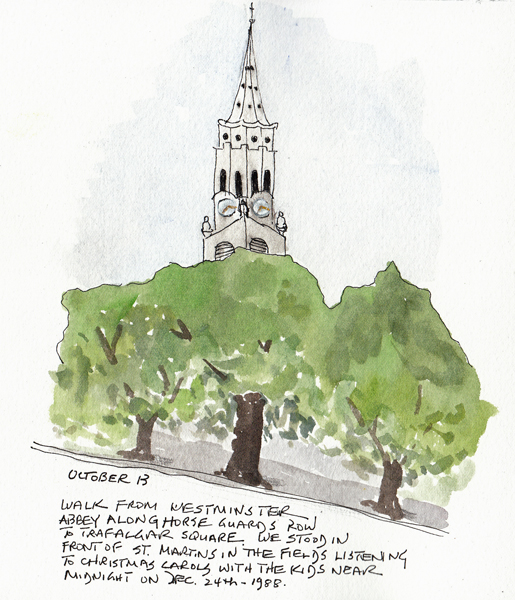 OCTOBER 13
WALK FROM WESTMINSTER
ABBEY ALONG HORSE GUARDS ROW
TO TRAFALGAR SQUARE. WE STOOD IN
FRONT OF ST. MARTINS IN THE FIELDS LISTENING
TO CHRISTMAS CAROLS WITH THE KIDS NEAR
MIDNIGHT ON DEC. 24TH - 1988.